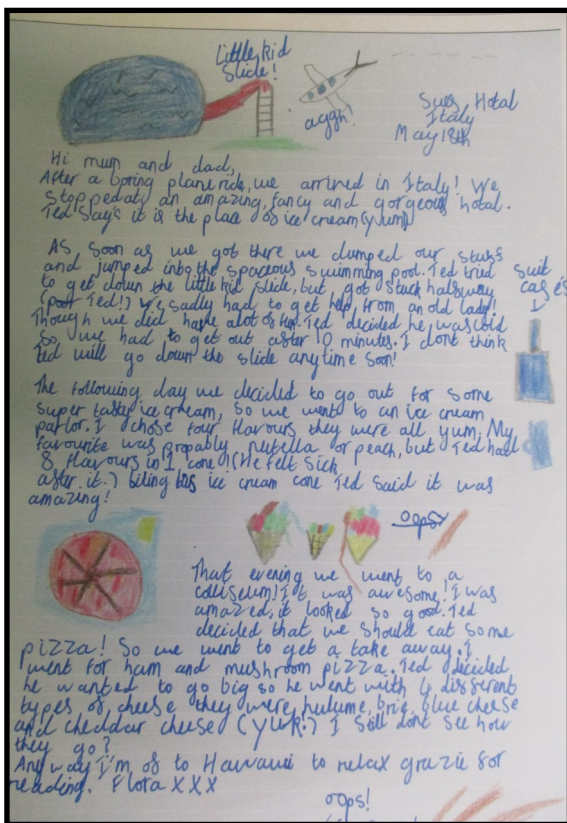 Little kid
Slide!
aggh!
Sues Hotal
Italy
May 18th
Hi mum and dad,
After a boring plane ride, we arrived in Italy! We
stopped at an amazing, fancy and gorgeous hotal.
Ted says it is the place of ice cream (yum)
As soon as we got there we dumped our stuff
and jumped into the spaceous swimming pool. Ted tried
to get down the little kid slide, but got stuck halfway
(poor Ted!) We sadly had to get help from an old lady!
Though we did have alot of fun. Ted decided he was cold
so we had to get out after 10 minutes. I dont think
Ted will go down the slide anytime soon!
suit
cases
The following day we decided to go out for some
super tasty ice cream, so we went to an ice cream
parlor. I chose four flavours they were all yum. My
favourite was propably nutella or peach, but Ted had
8 flavours in 1 cone! (He felt sick
after it.) biting his ice cream cone Ted said it was
amazing!
oops!
That evening we went to a
colliseum! It was awesome! I was
amazed, it looked so good. Ted
decided that we should eat some
pizza! So we went to get a take away. I
went for ham and mushroom pizza. Ted decided
he wanted to go big so he went with 4 different
types of cheese they were, hulume, brie, blue cheese
and cheddar cheese (yuk!) I still dont see how
they go?
Any way I'm of to Hawaii to relax grazie for
reading. Flora XXX
oops!